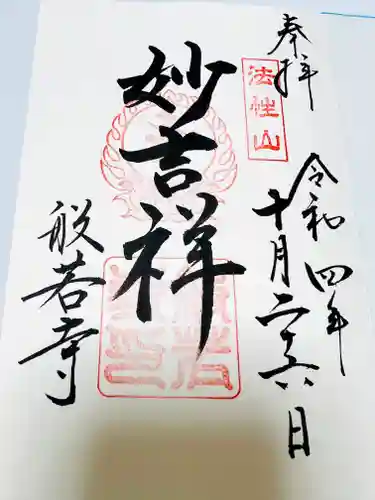 奉拝
法性山
令和四年
十月二十六日
妙吉祥
般若寺